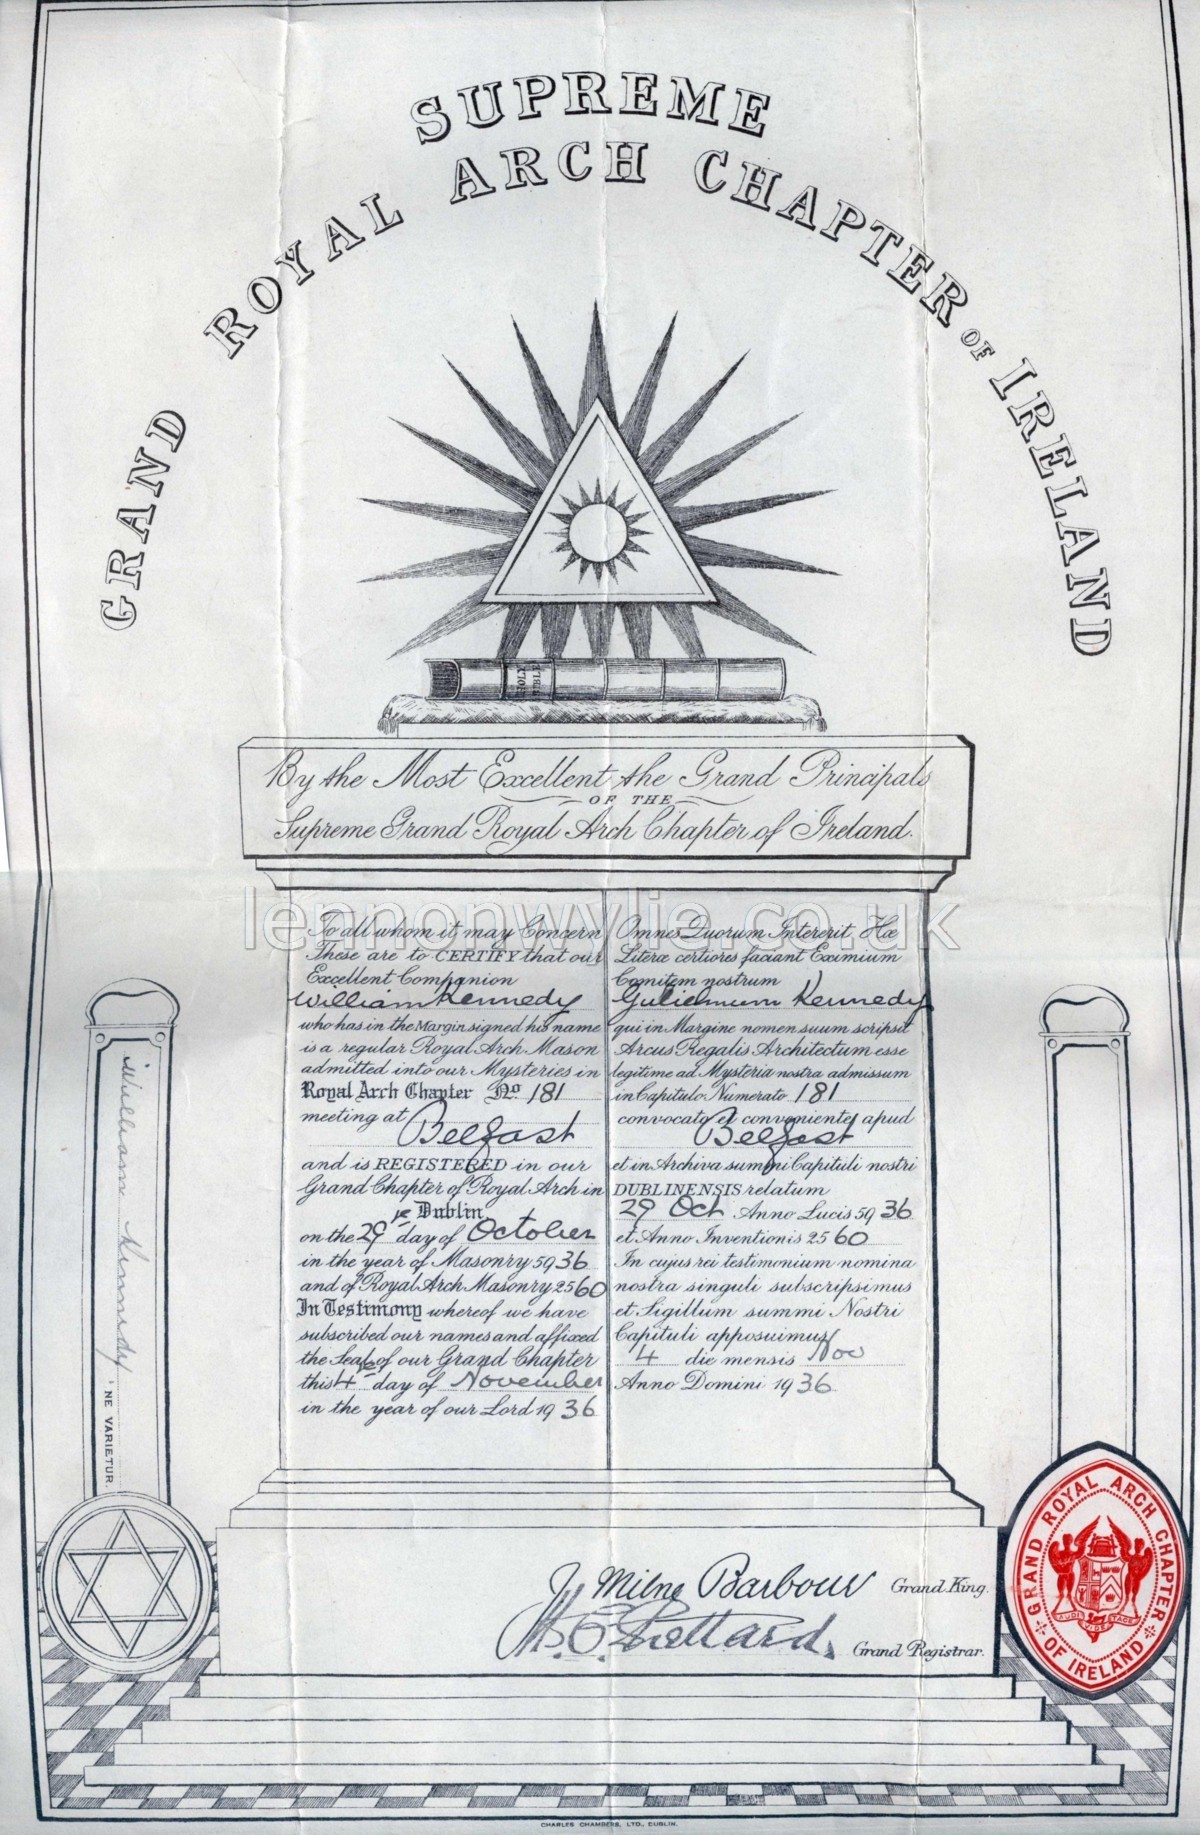 SUPREME
GRAND ROYAL ARCH CHAPTER OF IRELAND
HOLY
BIBLE
By the Most Excellent the Grand Principals
OF THE
Supreme Grand Royal Arch Chapter of Ireland.
lennonwylie.co.uk
To all whom it may Concern
These are to CERTIFY that our
Excellent Companion
William Kennedy
who has in the Margin signed his name
is a regular Royal Arch Mason
admitted into our Mysteries in
Royal Arch Chapter No. 181
meeting at
Belfast
and is REGISTERED in our
Grand Chapter of Royal Arch in
Dublin
on the 29 day of October
in the year of Masonry 5936
and of Royal Arch Masonry 2560
In Testimony whereof we have
subscribed our names and affixed
the Seal of our Grand Chapter
this 4th day of November
in the year of our Lord 1936
Omnes Quorum Intererit Hæ
Literæ certiores faciant Eximium
Comitem nostrum
Gulielmum Kennedy
qui in Margine nomen suum scripsit
Arcus Regalis Architectum esse
legitime ad Mysteria nostra admissum
in Capitulo Numerato 181
convocato et conveniente apud
Belfast
et in Archiva summi Capituli nostri
DUBLINENSIS relatum
29 Oct Anno Lucis 5936
et Anno Inventionis 2560
In cujus rei testimonium nomina
nostra singuli subscripsimus
et Sigillum summi Nostri
Capituli apposuimus
4 die mensis Nov
Anno Domini 1936
William Kennedy
NE VARIETUR.
Milne Barbour Grand King.
Grand Registrar.
GRAND ROYAL ARCH CHAPTER
OF IRELAND
AUDI VIDE TACE
CHARLES CHAMBERS, LTD., DUBLIN.